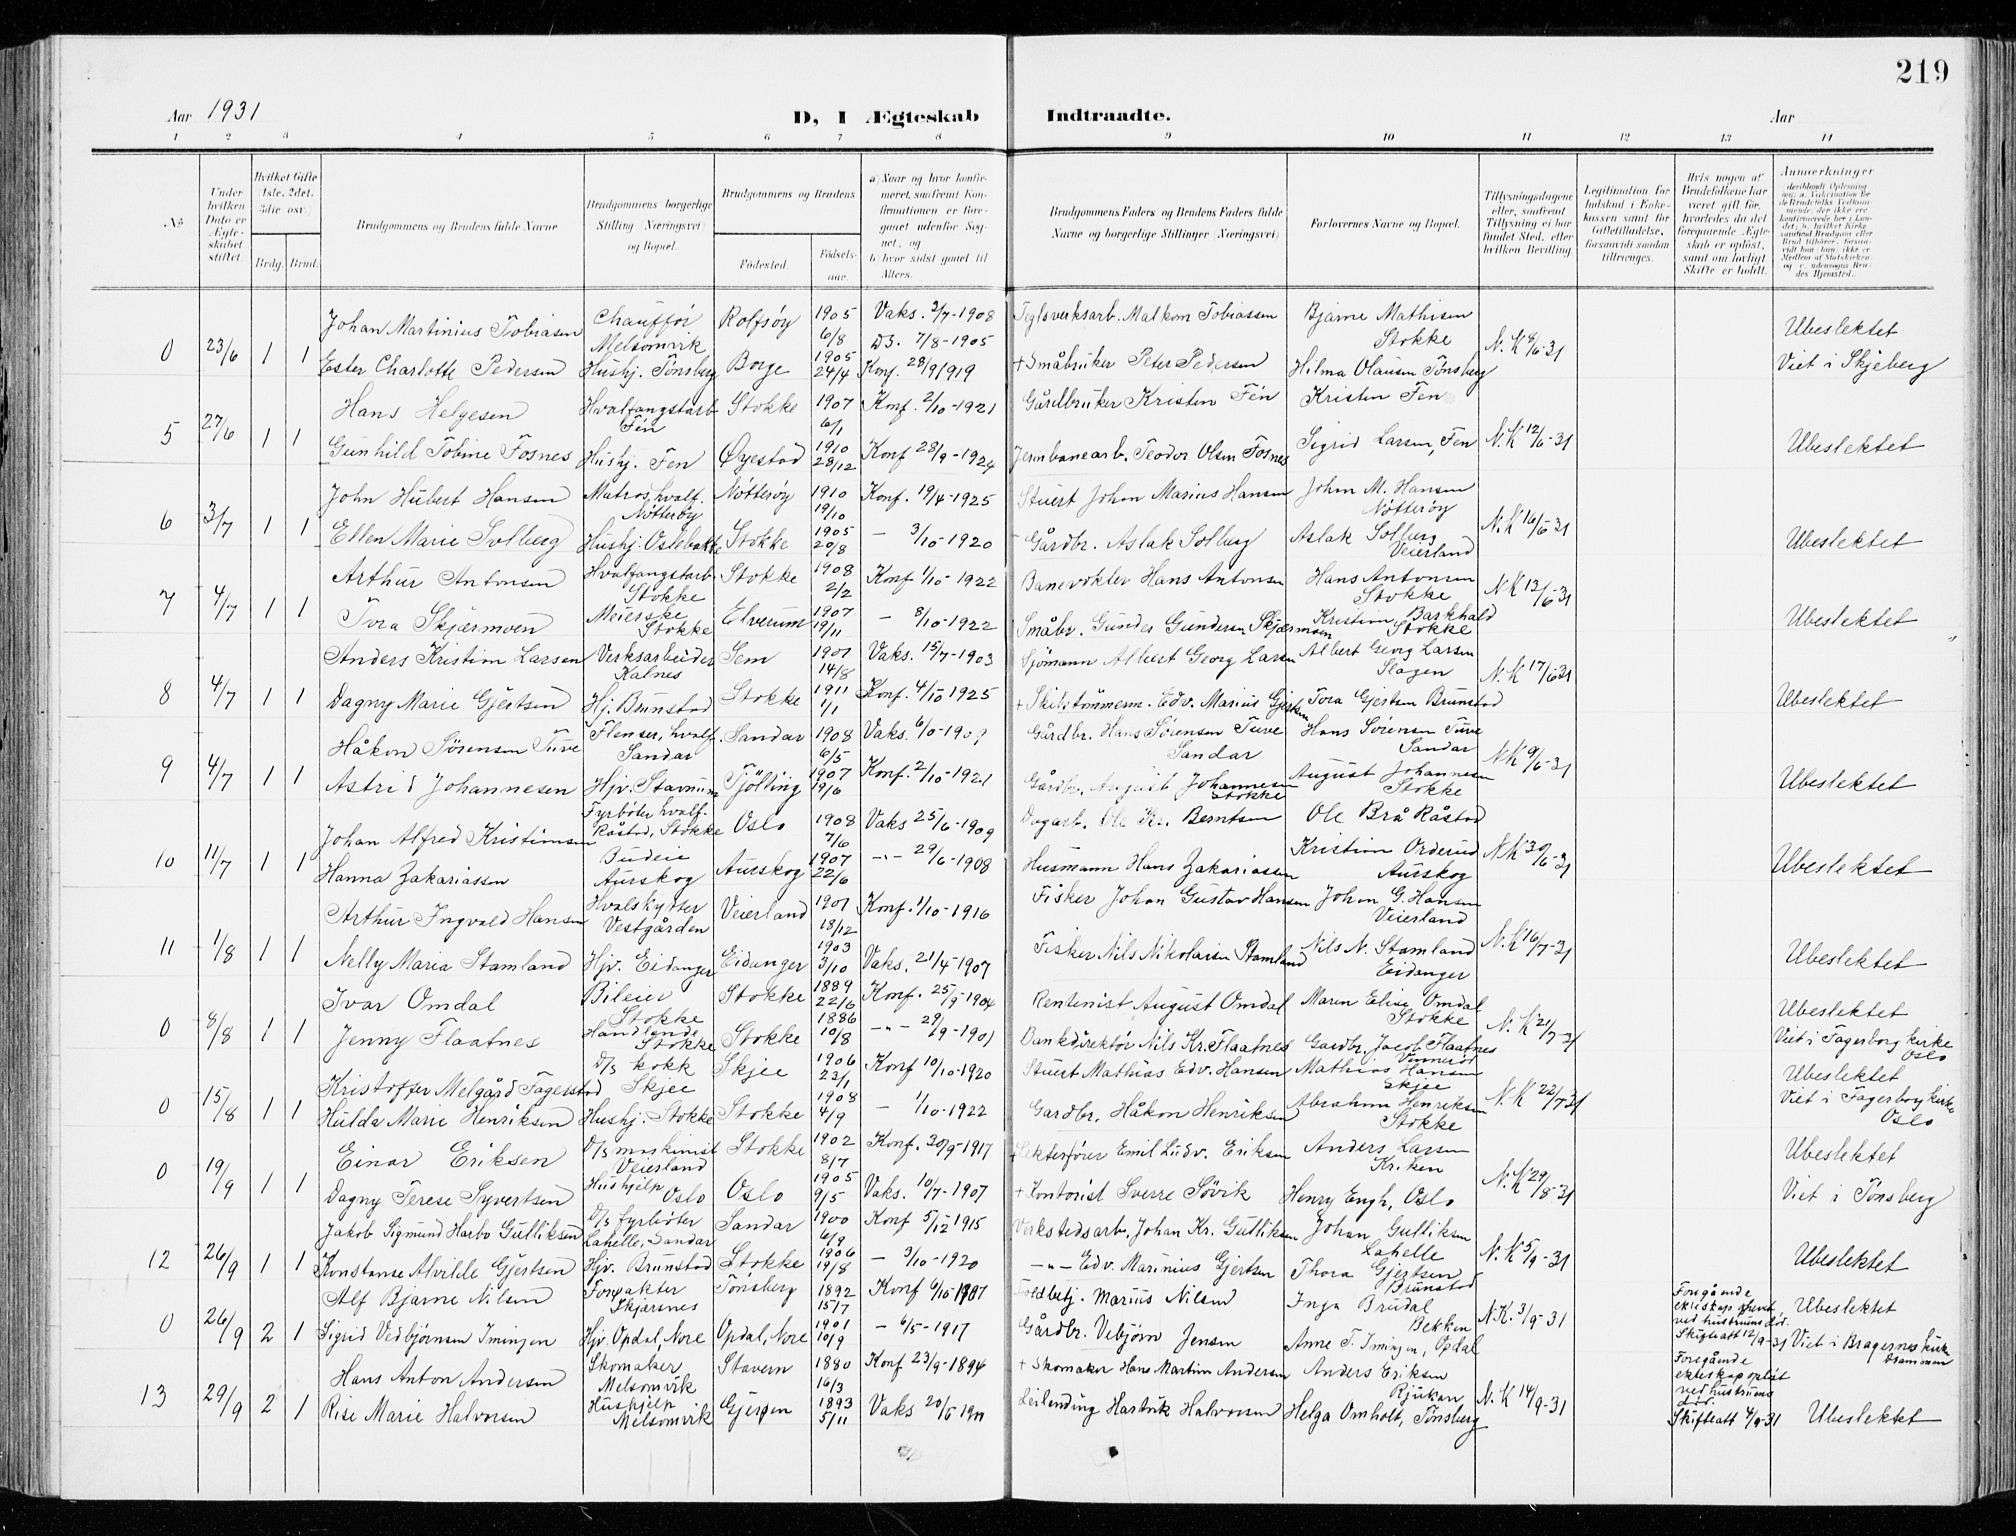 219
Aar 1931
D, I Ægteskab Indtraadte.
Aar
1 2 3 4 5 6 7 8 9 10 11 12 13 14
No
Under hvilken Dato er Ægteskabet stiftet
Hvilket Gifte 1ste, 2det, 3die osv.)
Brdg. Brud.
Brudgommens og Brudens fulde Navne
Brudgommens borgerlige Stilling (Næringsvei) og Bopæl.
Brudgommens og Brudens
Fødested.
Fødselsaar.
a) Naar og hvor konfirmeret, saafremt Konfirmationen er foregaaet udenfor Sognet, og
b) hvor sidst gaaet til Alters.
Brudgommens Faders og Brudens Faders fulde Navne og borgerlige Stillinger (Næringsvei)
Forlovernes Navne og Bopæl.
Tillysningsdagene eller, saafremt Tillysning ei har fundet Sted, efter hvilken Bevilling.
Legitimation for Indskud i Enkekassen samt for Giftetilladelse, forsaavidt saadan tiltrænges.
Hvis nogen af Brudefolkene har været gift før, hvorledes da det foregaaende Ægteskab er opløst, samt om lovligt Skifte er holdt.
Anmerkninger
Johan Martinius Tobiasen Chauffør Melsomvik Rolfsøy 1905 6/8 Vaks. 2/7-1908 Teglverksarb. Malkom Tobiassen Bjarne Mathisen Stokke
0 23/6 1 1 N.K 8/6-31 Ubeslektet
Ester Charlotte Pedersen Hushj. Tønsberg Borge 1905 24/4 D3. 7/8-1905 Konf. 28/9 1919 + Småbruker Peter Pedersen Hilma Olausen Tønsberg Viet i Skjeberg
Hans Helgesen Hvalfangstarb Fén Stokke 1907 6/1 Konf. 2/10-1921 Gårdbruker Kristen Fén Kristen Fen
5 27/6 1 1 N.K 12/6-31 Ubeslektet
Gunhild Tobine Fosnes Hushj. Fen Øyestad 1910 28/12 Konf 28/9-1924 Jernbanearb. Teodor Olsen Fosnes Sigrid Larsen, Fen
John Hubert Hansen Matros, hvalf. Nøtterøy Nøtterøy 1910 19/10 Konf. 19/4-1925 Stuert Johan Marius Hansen John M. Hansen Nøtterøy
6 3/7 1 1 N.K 16/6-31 Ubeslektet
Ellen Marie Solberg Hushj. Oslebakke Stokke 1905 20/8 - 3/10-1920 Gårdbr. Aslak Solberg Aslak Solberg Veierland
Arthur Antonsen Hvalfangstarb. Stokke Stokke 1908 2/2 Konf 1/10-1922 Banevokter Hans Antonsen Hans Antonsen Stokke
7 4/7 1 1 N.K 13/6-31 Ubeslektet
Tora Skjærmoen Meierske Stokke Elverum 1907 19/11 - 8/10-1922 Småbr. Gunder Gundersen Skjærmoen Kristian Barkhald Stokke
Anders Kristian Larsen Verksarbeider Kalnes Sem 1901 14/8 Vaks. 15/7-1903 Sjømann Albert Georg Larsen Albert Georg Larsen Slagen
8 4/7 1 1 N.K 17/6-31 Ubeslektet
Dagny Marie Gjertsen Hj. Brunstad Stokke 1911 1/1 Konf. 4/10-1925 + Skibstømmerm. Edv. Marius Gjertsen Tora Gjertsen Brunstad
Håkon Sørensen Tuve Flenser, hvalf. Sandar Sandar 1908 6/5 Vaks. 6/10-1909 Gårdbr. Hans Sørensen Tuve Sandar Hans Sørensen Tuve Sandar
9 4/7 1 1 N.K 9/6-31 Ubeslektet
Astrid Johannesen Hjv. Stavnum Tjølling 1907 19/6 Konf. 2/10-1921 Gårdbr. August Johannesen Stokke August Johannesen Stokke
Johan Alfred Kristiansen Fyrbøter hvalf. Råstad, Stokke Oslo 1908 7/6 Vaks 25/6-1909 Dagarb. Ole Kr. Berntsen Ole Brå Råstad
10 11/7 1 1 N.K 30/6-31 Ubeslektet
Hanna Zakariassen Budeie Aurskog Aurskog 1907 22/6 -"- 29/6-1908 Husmann Hans Zakariassen Kristian Orderud Aurskog
Arthur Ingvald Hansen Hvalskytter Vestgården Veierland 1901 18/12 Konf. 1/10-1916 Fisker Johan Gustav Hansen Johan G. Hansen Veierland
11 1/8 1 1 N.K 16/7-31 Ubeslektet
Nelly Maria Stamland Hjv. Eidanger Eidanger 1903 3/10 Vaks. 21/4-1907 Fisker Nils Nikolaisen Stamland Nils N. Stamland Eidanger
Ivar Omdal Bileier Stokke Stokke 1889 22/6 Konf. 25/9-1904 Rentenist August Omdal Maren Elise Omdal Stokke Ubeslektet
0 8/8 1 1 N.K 21/7-31
Jenny Flaatnes Handlende Stokke Stokke 1886 10/8 -"- 29/9-1901 Bankdirektør Nils Kr. Flaatnes Gardbr. Jacob Flaatnes Vennerød Viet i Fagerborg kirke Oslo
Kristoffer Melgård Fagerstad D/S kokk Skjee Skjee 1906 23/1 Konf 10/10-1920 Stuert Mathias Edv. Hansen Mathias Hansen Skjee Ubeslektet
0 15/8 1 1 N.K 22/7-31
Hulda Marie Henriksen Hushj. Stokke Stokke 1908 4/9 - 1/10-1922 Gardbr. Håkon Henriksen Abraham Henriksen Stokke Viet i Fagerborg kirke Oslo
Einar Eriksen D/S maskinist Veierland Stokke 1902 8/7 Konf. 30/9-1917 Lekterfører Emil Ludv. Eriksen Anders Larsen Kriken Ubeslektet
0 19/9 1 1 N.K 29/8-31
Dagny Terese Syvertsen Hushjelp Oslo Oslo 1905 9/5 Vaks. 10/7-1907 + Kontorist Sverre Søvik Henry Engh, Oslo Viet i Tønsberg
Jakob Sigmund Harbo Gulliksen D/S fyrbøter Lahelle, Sandar Sandar 1900 6/9 Konf 5/12 1915 Verkstedsarb. Johan Kr. Gulliksen Johan Gulliksen Lahelle
12 26/9 1 1 N.K 5/9-31 Ubeslektet
Konstanse Alvilde Gjertsen Hjv. Brunstad Stokke 1906 19/8 - 3/10-1920 -"- Edv. Marinius Gjertsen Thora Gjertsen Brunstad
Alf Bjarne Nilsen Forpakter Skjærsnes Tønsberg 1892 15/7 Konf 6/10-1907 Toldbetj. Marius Nilsen Inga Brudal Bekken
0 26/9 2 1 N.K. 3/9-31 Foregående ekteskap hevet ved hustruens død. Skifteatt 12/9-31 Ubeslektet
Sigrid Vedbjørnsen Imingen Hjv Opdal, Nore Opdal, Nore 1901 10/9 - 6/5-1917 Gårdbr. Vebjørn Jensen Anne T. Imingen, Opdal Viet i Bragernes kirke Drammen
Hans Anton Andersen Skomaker Melsomvik Stavern 1880 16/3 Konf 23/9-1894 + Skomaker Hans Martin Andersen Anders Eriksen Rjukan
13 29/9 2 1 N.K 14/9-31 Foregående ekteskap opløst ved hustruens død. Skifteatt 4/9-31 Ubeslektet
Rise Marie Halvorsen Hushjelp Melsomvik Gjerpen 1893 5/11 Vaks 20/6 1901 Leilending Hartvik Halvorsen Helga Omholt, Tønsberg